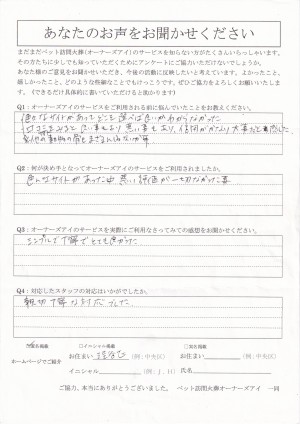 あなたのお声をお聞かせください
まだまだペット訪問火葬(オーナーズアイ)のサービスを知らない方がたくさんいらっしゃいます。
その方たちに少しでも知っていただくためにアンケートにご協力いただけないでしょうか。
あなた様のご意見をお聞かせいただき、今後の活動に反映したいと考えています。よかったこと、
嬉しかったこと、どのような些細なことでもけっこうです。ぜひご協力をよろしくお願いいたします。
(できるだけ具体的に書いていただけると助かります)
Q1:オーナーズアイのサービスをご利用される前に悩んでいたことをお教えください。
色々なサイトがあってどこを選べば良いかわからなかった
口コミをみると良い事もあり悪い事もあり
Q2:何が決め手となってオーナーズアイのサービスをご利用されましたか。
色んなサイトがあった中悪い評価が一切なかった事
Q3:オーナーズアイのサービスを実際にご利用なさってみての感想をお聞かせください。
シンプルで丁寧でとても良かった
Q4:対応したスタッフの対応はいかがでしたか。
親切丁寧な対応でした
□イニシャル掲載
ホームページでご紹介
お住まい (例:中央区)
お住まい (例:中央区)
イニシャル (例:J.H)
氏名
ご協力、本当にありがとうございました。 ペット訪問火葬オーナーズアイ 一同